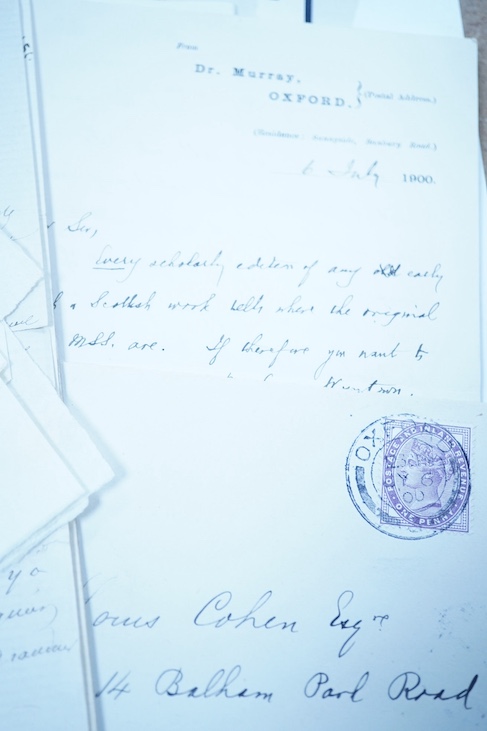 From
Dr. Murray,
OXFORD.
(Postal Address.)
(Residence: Sunnyside, Banbury Road.)
6 July 1900.
Sir,
Every scholarly edition of any old early
a Scottish work tells where the original
MSS. are. If therefore you want to
OXFORD
POSTAGE AND INLAND REVENUE
ONE PENNY
ouis Cohen Esqre
14 Balham Park Road